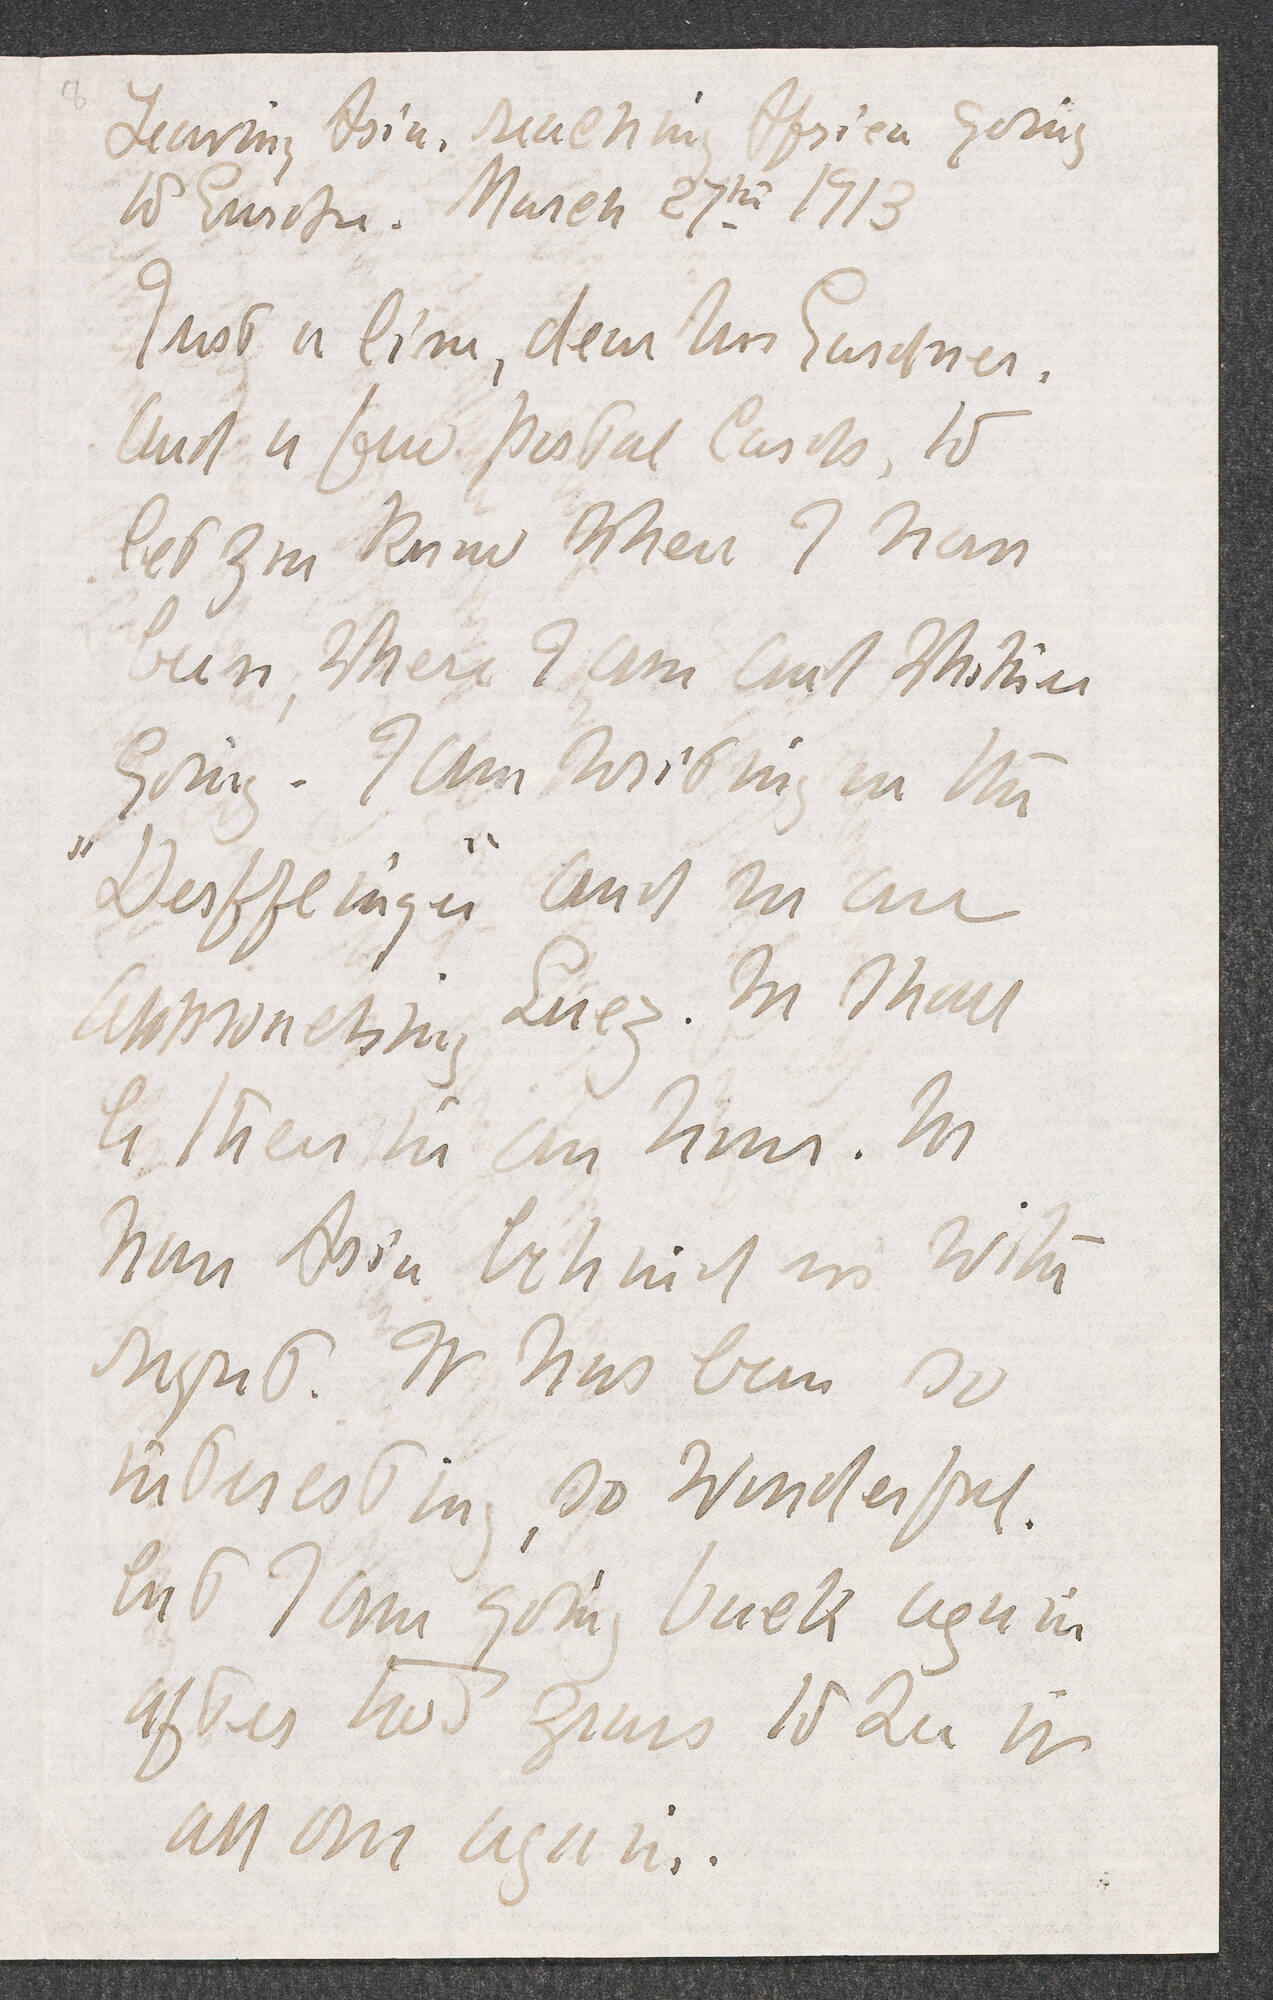 8
Leaving Asia. reaching Africa going
to Europe. March 27th 1913
Just a line, dear Mrs Gardner.
and a few postal cards, to
let you know where I have
been, where I am and whither
going - I am writing on the
"Derfflinger" and we are
approaching Suez. We shall
be there in an hour. We
have Asia behind us with
regret. It has been so
interesting, so wonderful.
but I am going back again
after two years to see it
all over again.